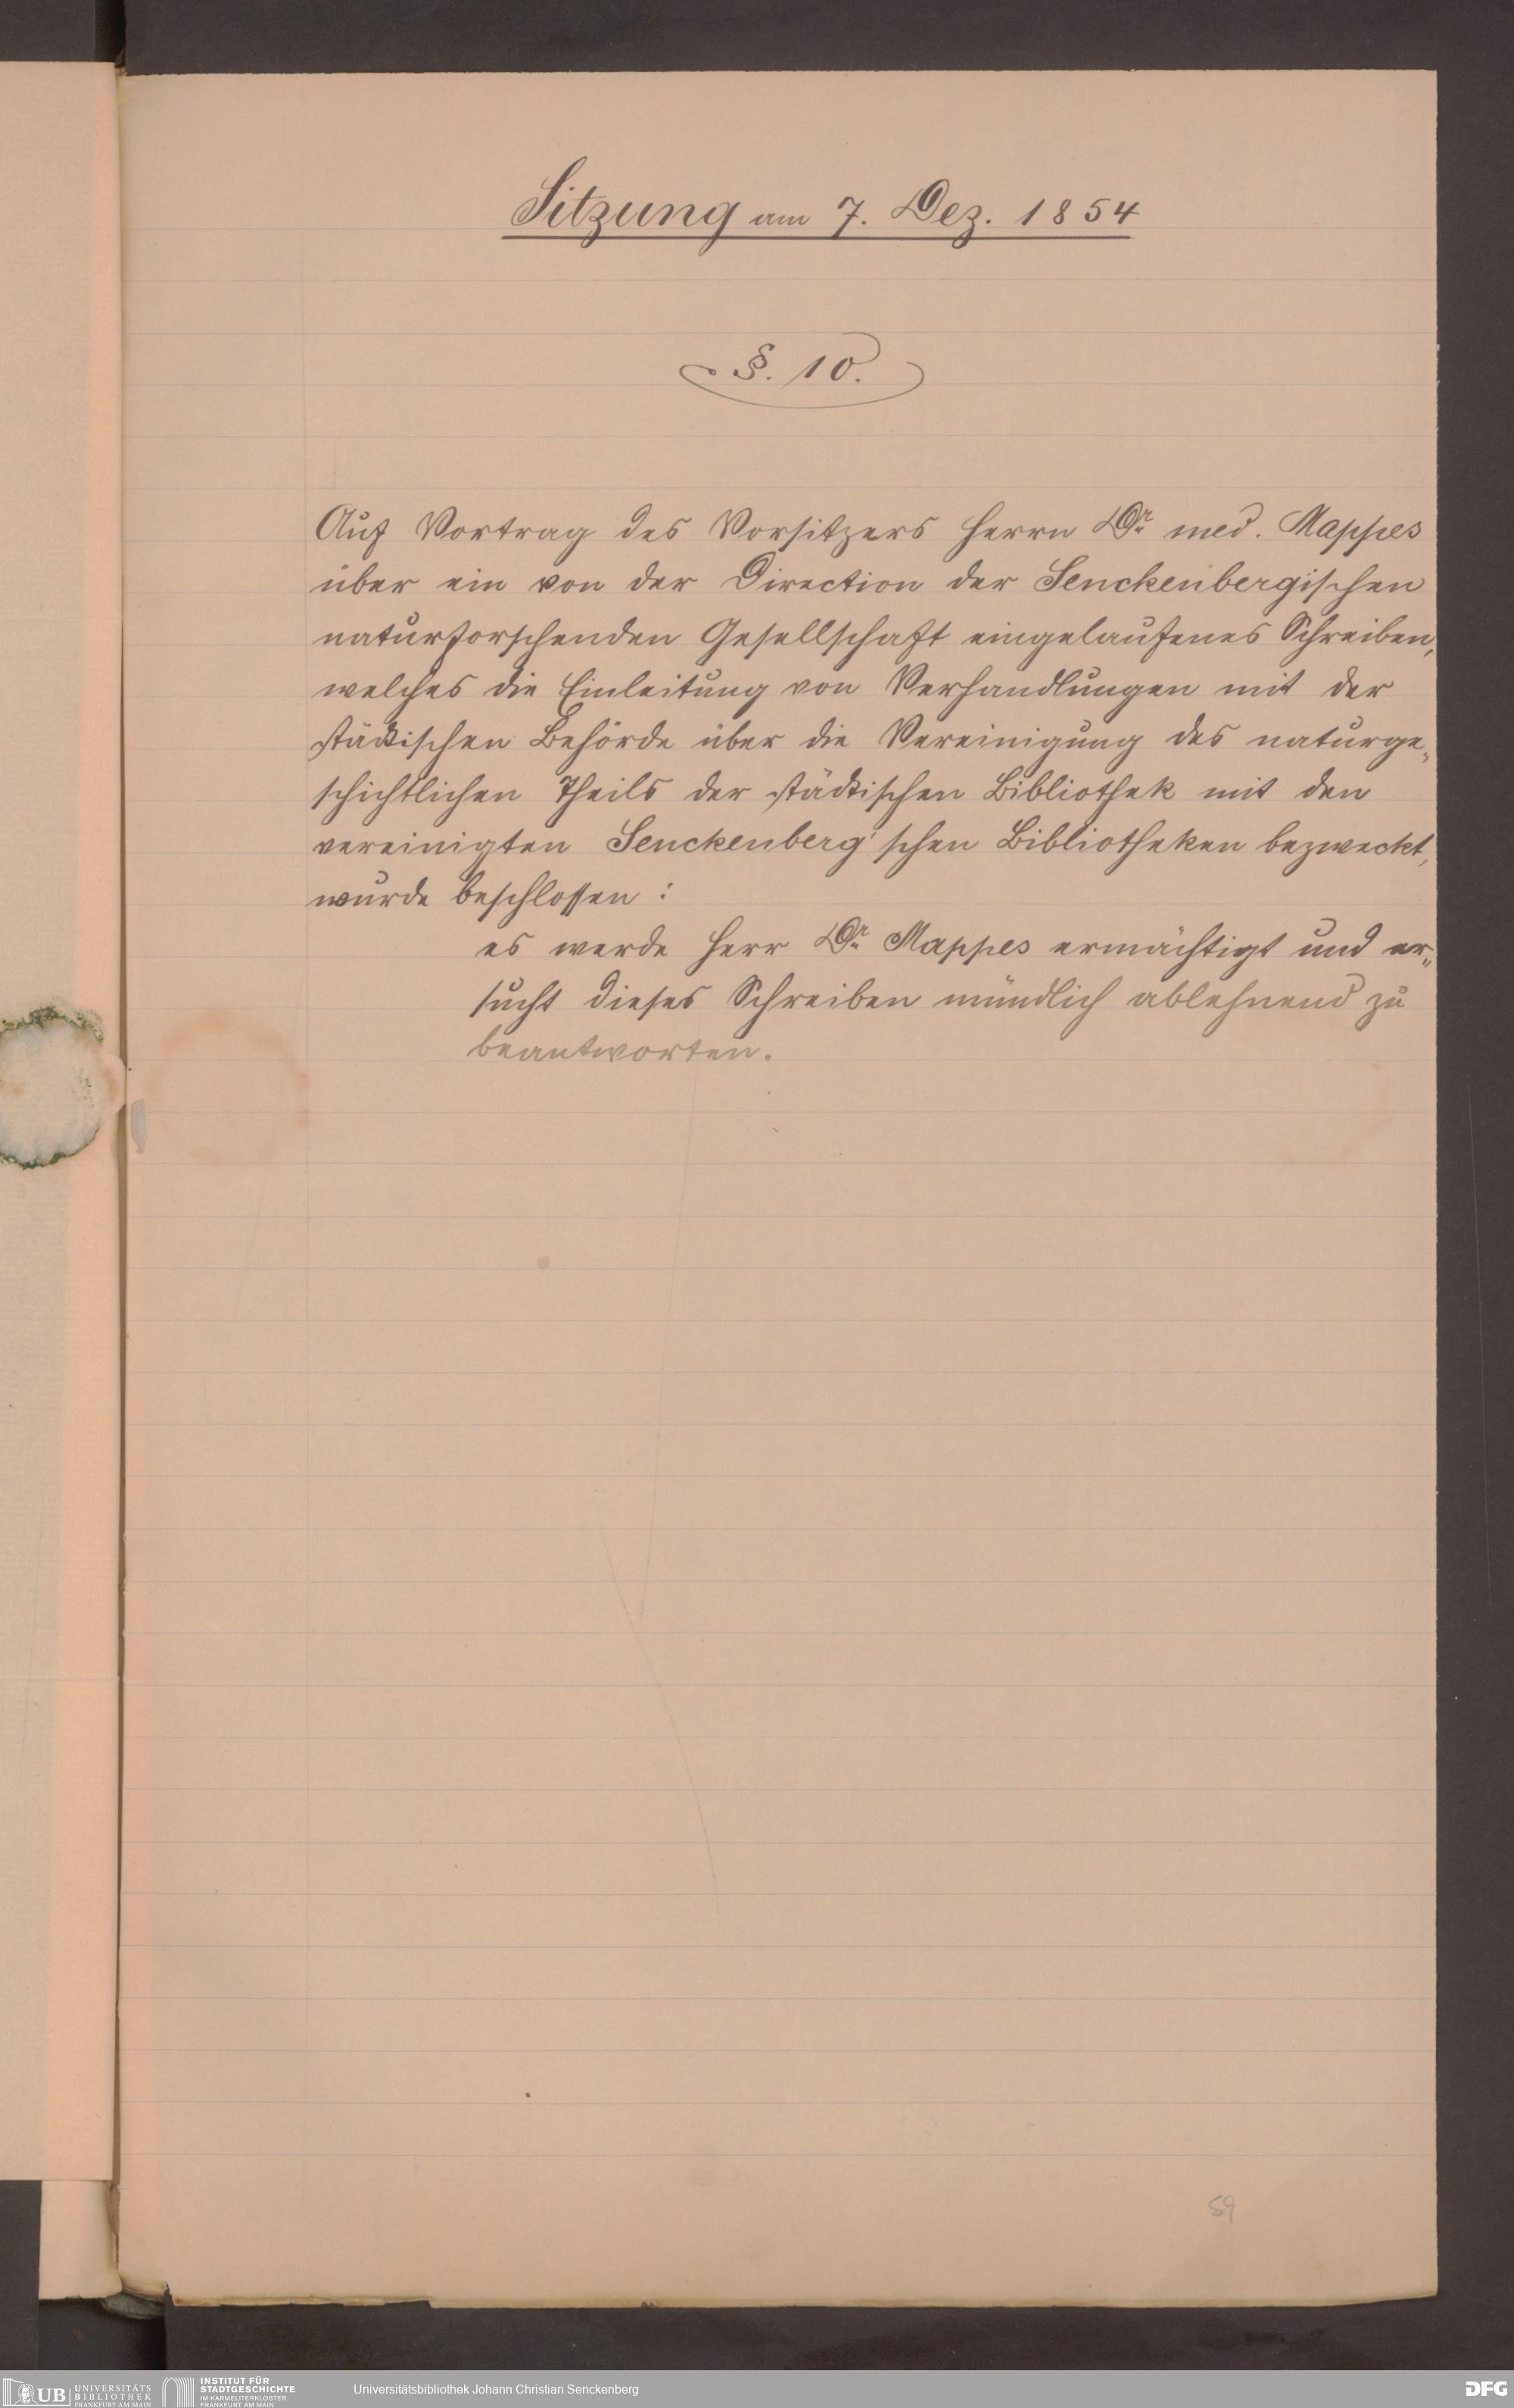 Sitzung am 7. Dez. 1854
§. 10.
Auf Vortrag des Vorsitzers Herrn Dr. med. Mappes
über ein von der Direction der Senckenbergischen
naturforschenden Gesellschaft eingelaufenes Schreiben,
welches die Einleitung von Verhandlungen mit der
städtischen Behörde über die Vereinigung des naturge-
schichtlichen Theils der städtischen Bibliothek mit den
vereinigten Senckenberg'schen Bibliotheken bezweckt,
wurde beschlossen:
es werde Herr Dr. Mappes ermächtigt und er-
sucht dieses Schreiben mündlich ablehnend zu
beantworten.
59
UB UNIVERSITÄTS
BIBLIOTHEK
FRANKFURT AM MAIN
INSTITUT FÜR
STADTGESCHICHTE
IM KARMELITERKLOSTER
FRANKFURT AM MAIN
Universitätsbibliothek Johann Christian Senckenberg
DFG